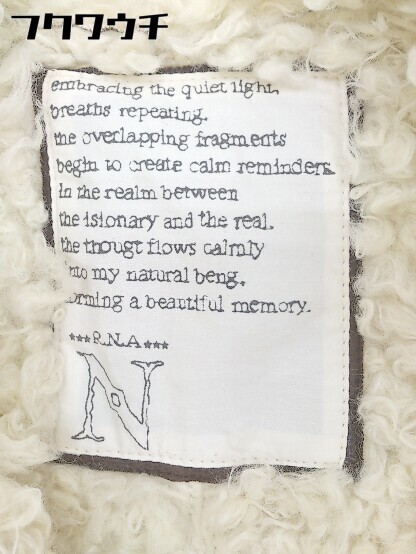 フクワウチ
embracing the quiet light,
breaths repeating.
the overlapping fragments
begin to create calm reminders.
in the realm between
the isionary and the real.
the thougt flows calmly
into my natural beng,
orming a beautiful memory.
★★★R.N.A★★★
N